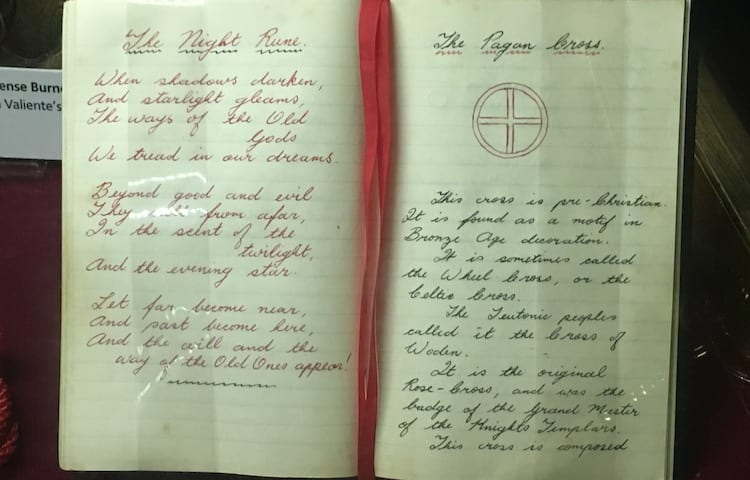 ense Burne
Valiente's
The Night Rune.
When shadows darken,
And starlight gleams,
The ways of the Old
Gods
We tread in our dreams.
Beyond good and evil
They call from afar,
In the scent of the
twilight,
And the evening star.
Let far become near,
And past become here,
And the will and the
way of the Old Ones appear!
The Pagan Cross.
This cross is pre-Christian.
It is found as a motif in
Bronze Age decoration.
It is sometimes called
the Wheel Cross, or the
Celtic Cross.
The Teutonic peoples
called it the Cross of
Woden.
It is the original
Rose-Cross, and was the
badge of the Grand Master
of the Knights Templars.
This cross is composed